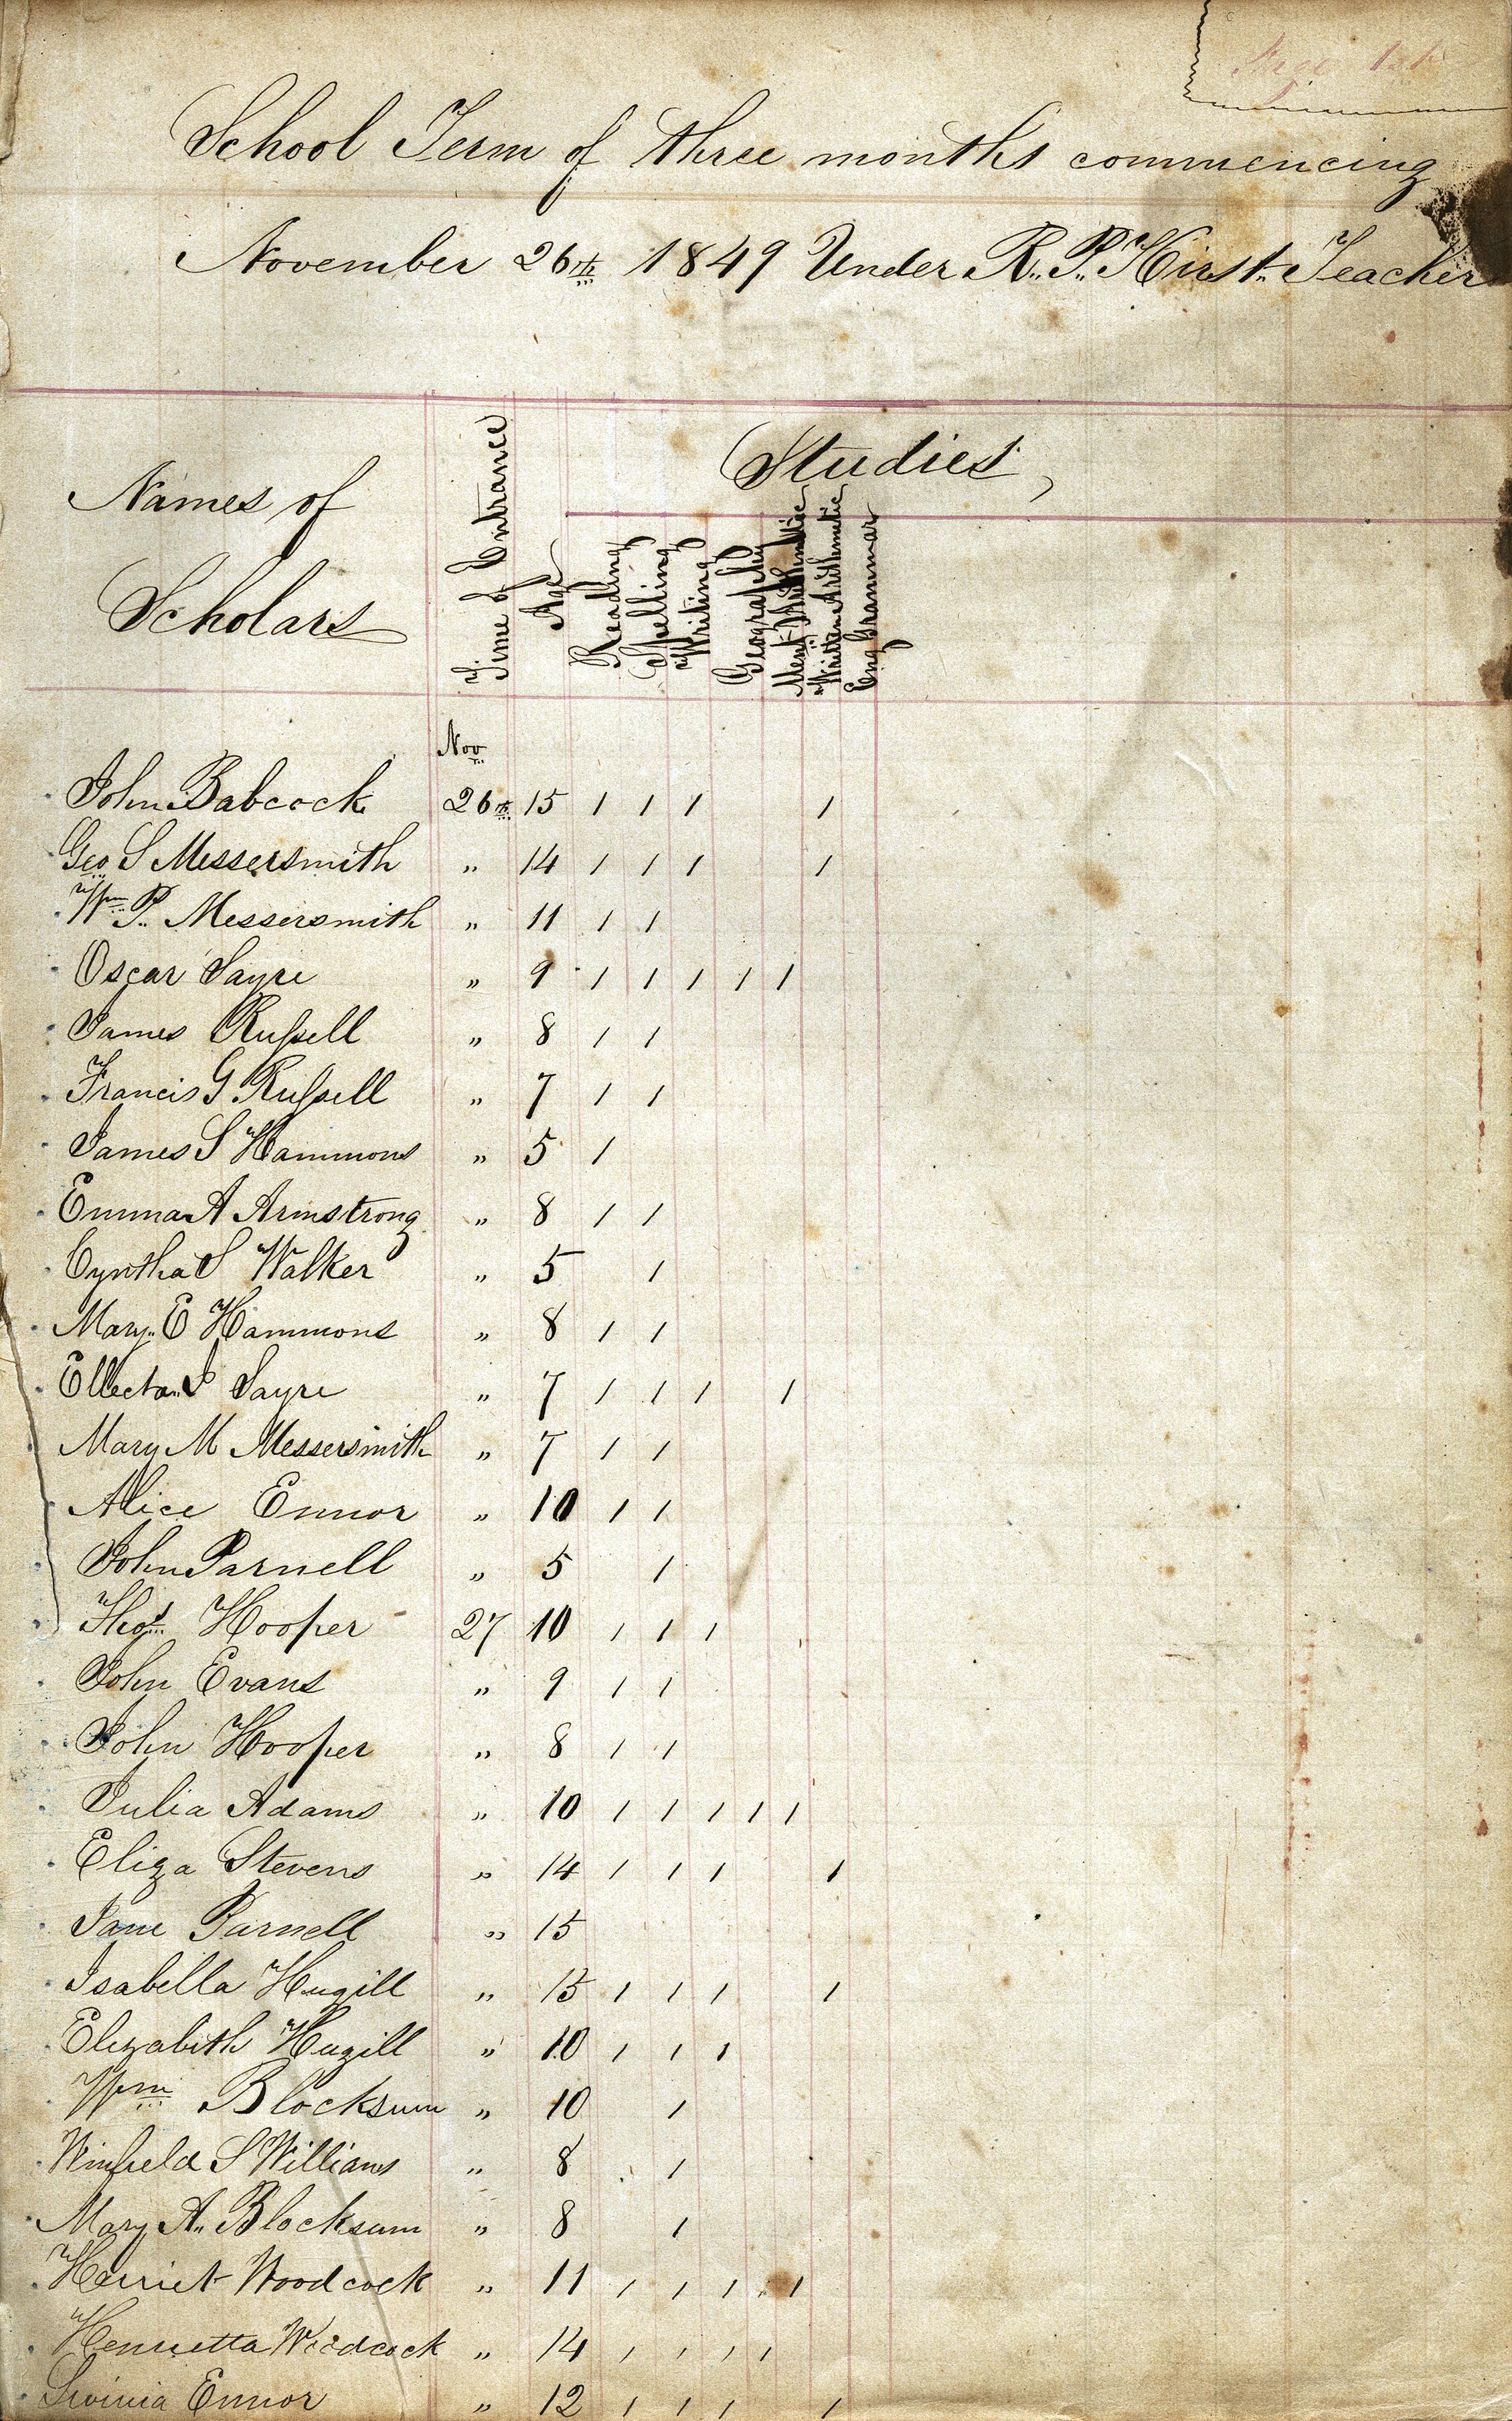 Page 1st
School Term of three months commencing
November 26th 1849 Under R. P. Hirst Teacher
Names of Scholars
Time of Entrance
Age
Studies
Reading
Spelling
Writing
Geography
Ment Arithmetic
Written Arithmetic
Eng Grammar
Nov
John Babcock 26th 15 / / / /
Geo S Messersmith " 14 / / / /
Wm P. Messersmith " 11 / /
Oscar Sayre " 9 / / / / /
James Russell " 8 / /
Francis G Russell " 7 / /
James S Hammons " 5 /
Emma A Armstrong " 8 / /
Cyntha S Walker " 5 /
Mary E Hammons " 8 / /
Ellecta J Sayre " 7 / / / /
Mary M Messersmith " 7 / /
Alice Ennor " 10 / /
John Parnell " 5 /
Thos Hooper 27 10 / / /
John Evans " 9 / /
John Hooper " 8 / /
Julia Adams " 10 / / / / /
Eliza Stevens " 14 / / / /
Jane Parnell " 15
Isabella Hugill " 15 / / / /
Elizabith Hugill " 10 / / /
Wm Blocksum " 10 /
Winfield S Williams " 8 /
Mary A. Blocksum " 8 /
Harriet Woodcock " 11 / / / /
Henrietta Woodcock " 14 / / / /
Livinia Ennor " 12 / / / /